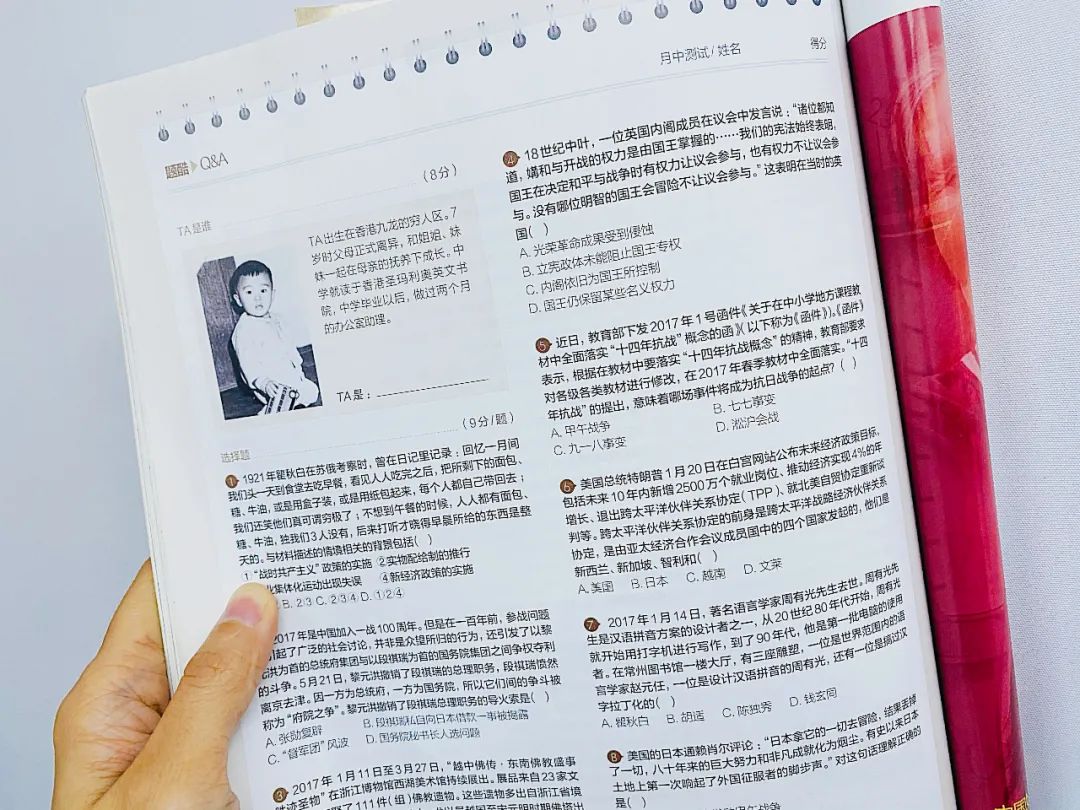 月中测试/姓名
得分
题酷 Q&A
(8分)
TA是谁
TA出生在香港九龙的穷人区。7
岁时父母正式离异,和姐姐、妹
妹一起在母亲的抚养下成长。中
学就读于香港圣玛利奥英文书
院,中学毕业以后,做过两个月
的办公室助理。
TA是:
(9分/题)
选择题
1 1921年瞿秋白在苏俄考察时,曾在日记里记录:回忆一月间
我们头一天到食堂去吃早餐,看见人人吃完之后,把所剩下的面包、
糖、牛油,或是用盒子装,或是用纸包起来,每个人都自己带回去;
我们还笑他们真可谓穷极了;不想到午餐的时候,人人都有面包、
糖、牛油,独我们3人没有,后来打听才晓得早晨所给的东西是整
天的。与材料描述的情境相关的背景包括( )
①“战时共产主义”政策的实施 ②实物配给制的推行
化集体化运动出现失误 ④新经济政策的实施
B.②③ C.②③④ D.①②④
2017年是中国加入一战100周年。但是在一百年前,参战问题
引起了广泛的社会讨论,并非是众望所归的行为,还引发了以黎
元洪为首的总统府集团与以段祺瑞为首的国务院集团之间争权夺利
的斗争。5月21日,黎元洪撤销了段祺瑞的总理职务,段祺瑞愤然
离京去津。因一方为总统府,一方为国务院,所以它们间的争斗被
称为“府院之争”。黎元洪撤销了段祺瑞总理职务的导火索是( )
A. 张勋复辟 B. 段祺瑞私自向日本借款一事被揭露
C. “督军团”风波 D. 国务院秘书长人选问题
3 2017年1月11日至3月27日,“越中佛传·东南佛教盛事
胜迹圣物”在浙江博物馆西湖美术馆持续展出。展品来自23家文
聚了111件(组)佛教遗物。这些遗物多出自浙江省境
4 18世纪中叶,一位英国内阁成员在议会中发言说:“诸位都知
道,媾和与开战的权力是由国王掌握的……我们的宪法始终表明,
国王在决定和平与战争时有权力让议会参与,也有权力不让议会参
与。没有哪位明智的国王会冒险不让议会参与。”这表明在当时的英
国( )
A. 光荣革命成果受到侵蚀
B. 立宪政体未能阻止国王专权
C. 内阁依旧为国王所控制
D. 国王仍保留某些名义权力
5 近日,教育部下发2017年1号函件《关于在中小学地方课程教
材中全面落实“十四年抗战”概念的函》(以下称为《函件》)。《函件》
表示,根据在教材中要落实“十四年抗战概念”的精神,教育部要求
对各级各类教材进行修改,在2017年春季教材中全面落实。“十四
年抗战”的提出,意味着哪场事件将成为抗日战争的起点?( )
A. 甲午战争 B. 七七事变
C. 九一八事变 D. 淞沪会战
6 美国总统特朗普1月20日在白宫网站公布未来经济政策目标,
包括未来10年内新增2500万个就业岗位、推动经济实现4%的年
增长、退出跨太平洋伙伴关系协定(TPP)、就北美自贸协定重新谈
判等。跨太平洋伙伴关系协定的前身是跨太平洋战略经济伙伴关系
协定,是由亚太经济合作会议成员国中的四个国家发起的,他们是
新西兰、新加坡、智利和( )
A. 美国 B. 日本 C. 越南 D. 文莱
7 2017年1月14日,著名语言学家周有光先生去世。周有光先
生是汉语拼音方案的设计者之一,从20世纪80年代开始,周有光
就开始用打字机进行写作,到了90年代,他是第一批电脑的使用
者。在常州图书馆一楼大厅,有三座雕塑,一位是世界范围内的语
言学家赵元任,一位是设计汉语拼音的周有光,还有一位是搞过汉
字拉丁化的( )
A. 瞿秋白 B. 胡适 C. 陈独秀 D. 钱玄同
8 美国的日本通赖肖尔评论:“日本拿它的一切去冒险,结果丢掉
了一切,八十年来的巨大努力和非凡成就化为烟尘。有史以来日本
土地上第一次响起了外国征服者的脚步声。”对这句话理解正确的
是( )